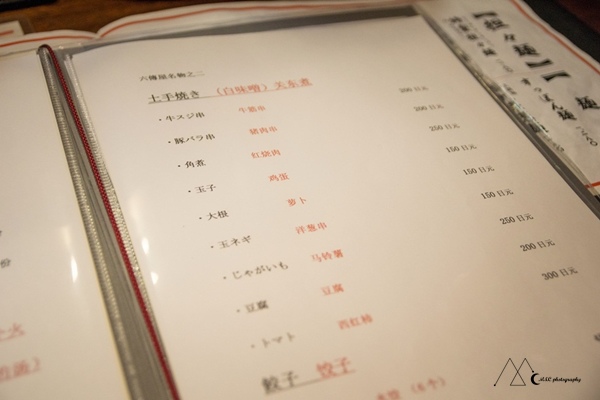 六傳屋名物之二
土手焼き （白味噌）关东煮
・牛スジ串 牛筋串 200 日元
・豚バラ串 猪肉串 200 日元
・角煮 红烧肉 250 日元
・玉子 鸡蛋 150 日元
・大根 萝卜 150 日元
・玉ネギ 洋葱串 150 日元
・じゃがいも 马铃薯 250 日元
・豆腐 豆腐 200 日元
・トマト 西红柿 300 日元
餃子 饺子
（6个）
份
火
派）
【担々麺】
M&C photography